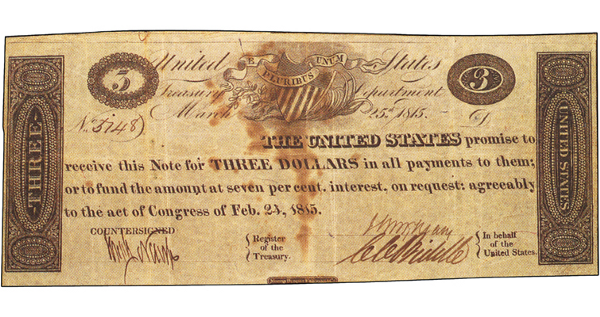 United States
E PLURIBUS UNUM
3
3
Treasury Department
March 25th 1815.
No. 5148
THREE
UNITED STATES
THE UNITED STATES promise to
receive this Note for THREE DOLLARS in all payments to them;
or to fund the amount at seven per cent. interest, on request: agreeably
to the act of Congress of Feb. 24, 1815.
COUNTERSIGNED
Register
of the
Treasury.
In behalf
of the
United States.